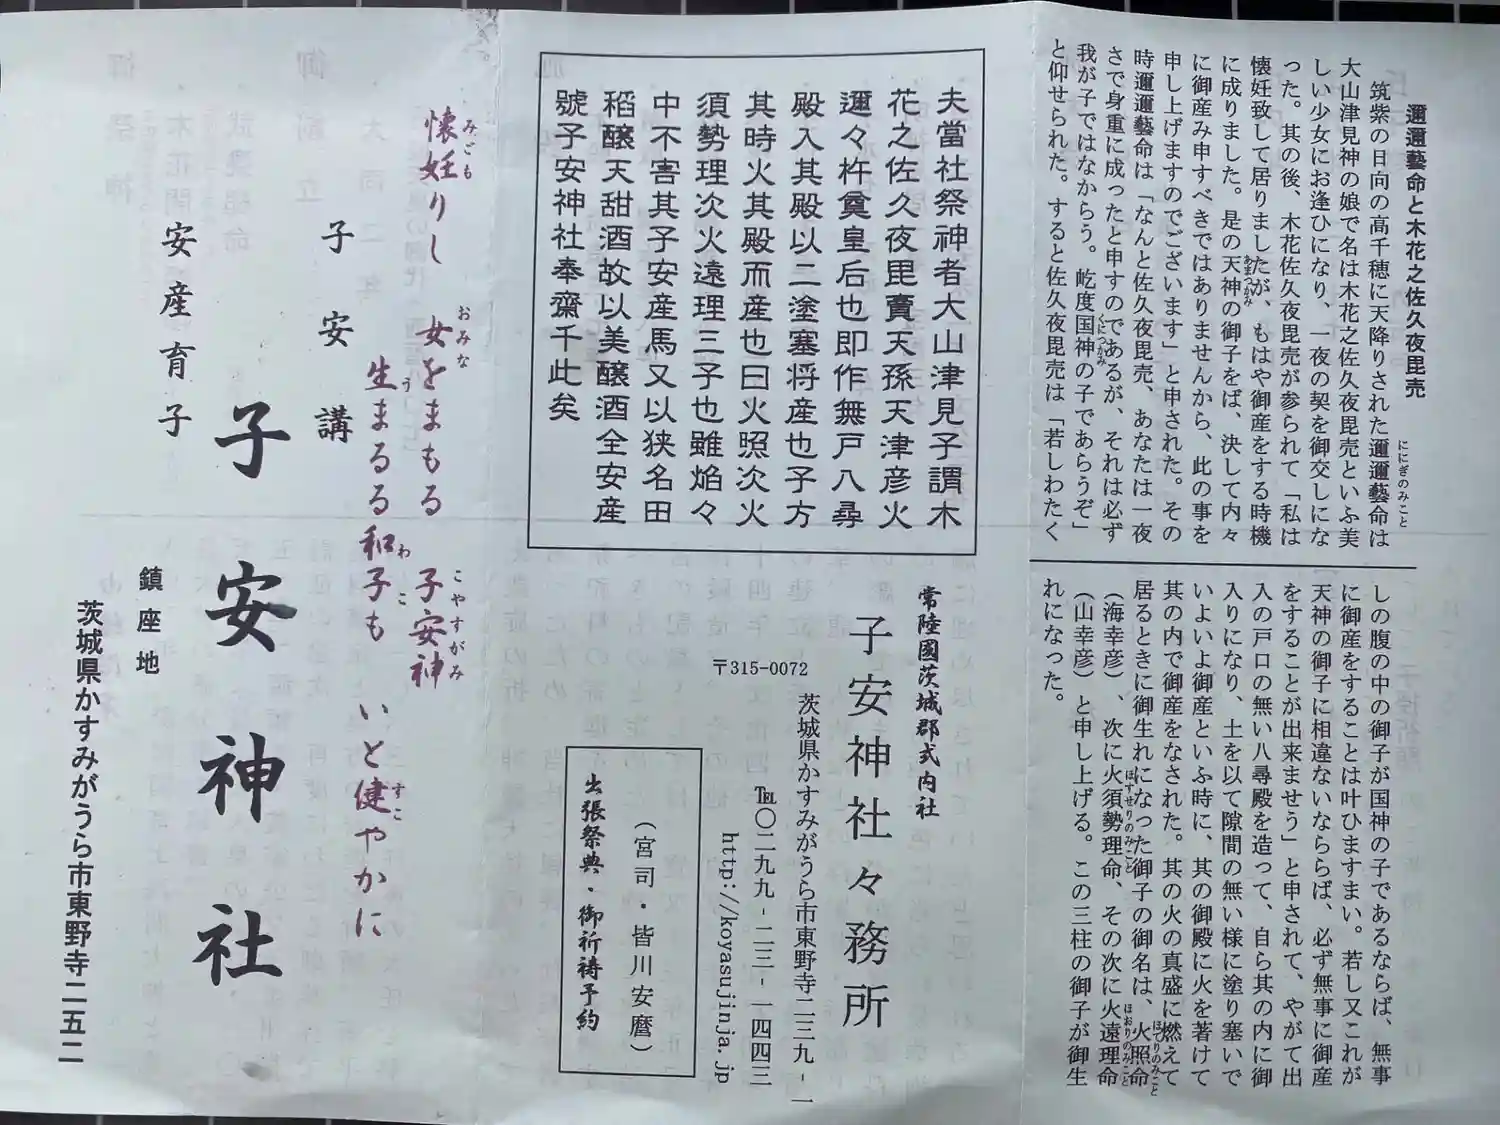 邇邇藝命と木花之佐久夜毘売
筑紫の日向の高千穂に天降りされた邇邇藝命は
ににぎのみこと
大山津見神の娘で名は木花之佐久夜毘売といふ美
しい少女にお逢ひになり、一夜の契を御交しにな
った。其の後、木花佐久夜毘売が参られて「私は
懐妊致して居りましたが、もはや御産をする時機
に成りました。是の天神の御子をば、決して内々
あまつかみ
に御産み申すべきではありませんから、此の事を
申し上げますのでございます」と申された。その
時邇邇藝命は「なんと佐久夜毘売、あなたは一夜
さで身重に成ったと申すのであるが、それは必ず
我が子ではなからう。屹度国神の子であらうぞ」
くにつかみ
と仰せられた。すると佐久夜毘売は「若しわたく
しの腹の中の御子が国神の子であるならば、無事
に御産をすることは叶ひますまい。若し又これが
天神の御子に相違ないなららば、必ず無事に御産
をすることが出来ませう」と申されて、やがて出
入の戸口の無い八尋殿を造って、自ら其の内に御
入りになり、土を以て隙間の無い様に塗り塞いで
いよいよ御産といふ時に、其の御殿に火を著けて
其の内で御産をなされた。其の火の真盛に燃えて
居るときに御生れになった御子の御名は、火照命
ほでりのみこと
（海幸彦）、次に火須勢理命、その次に火遠理命
ほすせりのみこと
ほおりのみこと
（山幸彦）と申し上げる。この三柱の御子が御生
れになった。
夫當社祭神者大山津見子謂木
花之佐久夜毘賣天孫天津彦火
邇々杵奠皇后也即作無戸八尋
殿入其殿以二塗塞将産也子方
其時火其殿而産也曰火照次火
須勢理次火遠理三子也雖焔々
中不害其子安産馬又以狭名田
稻釀天甜酒故以美釀酒全安産
號子安神社奉齋千此矣
常陸國茨城郡式内社
子安神社々務所
〒315-0072
茨城県かすみがうら市東野寺二三九-一
℡〇二九九-二三-一四四三
http://koyasujinja.jp
（宮司・皆川安麿）
出張祭典・御祈祷予約
懐妊りし　女をまもる　子安神
みごも
おみな
こやすがみ
生まるる和子も　いと健やかに
う
わこ
すこ
子安講
子安神社
安産育子
鎮座地
茨城県かすみがうら市東野寺二五二